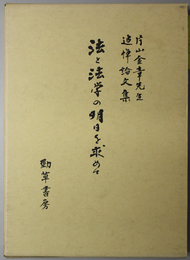 片山金章先生
追悼論文集
法と法学の明日を求めて
勁草書房